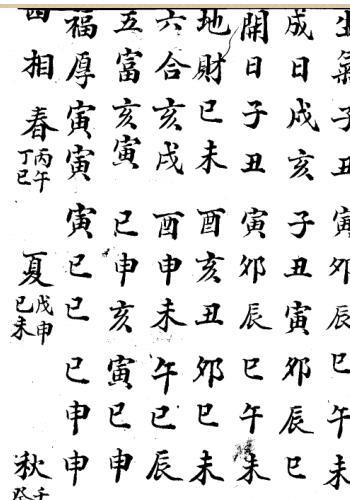 生氣子丑寅卯辰巳午未
成日戌亥子丑寅卯辰巳
開日子丑寅卯辰巳午未
地財巳未酉亥丑卯巳未
六合亥戌酉申未午巳辰
五富亥寅巳申亥寅巳申
福厚寅寅寅巳巳巳申申
相春丙午丁巳夏戊申己未秋